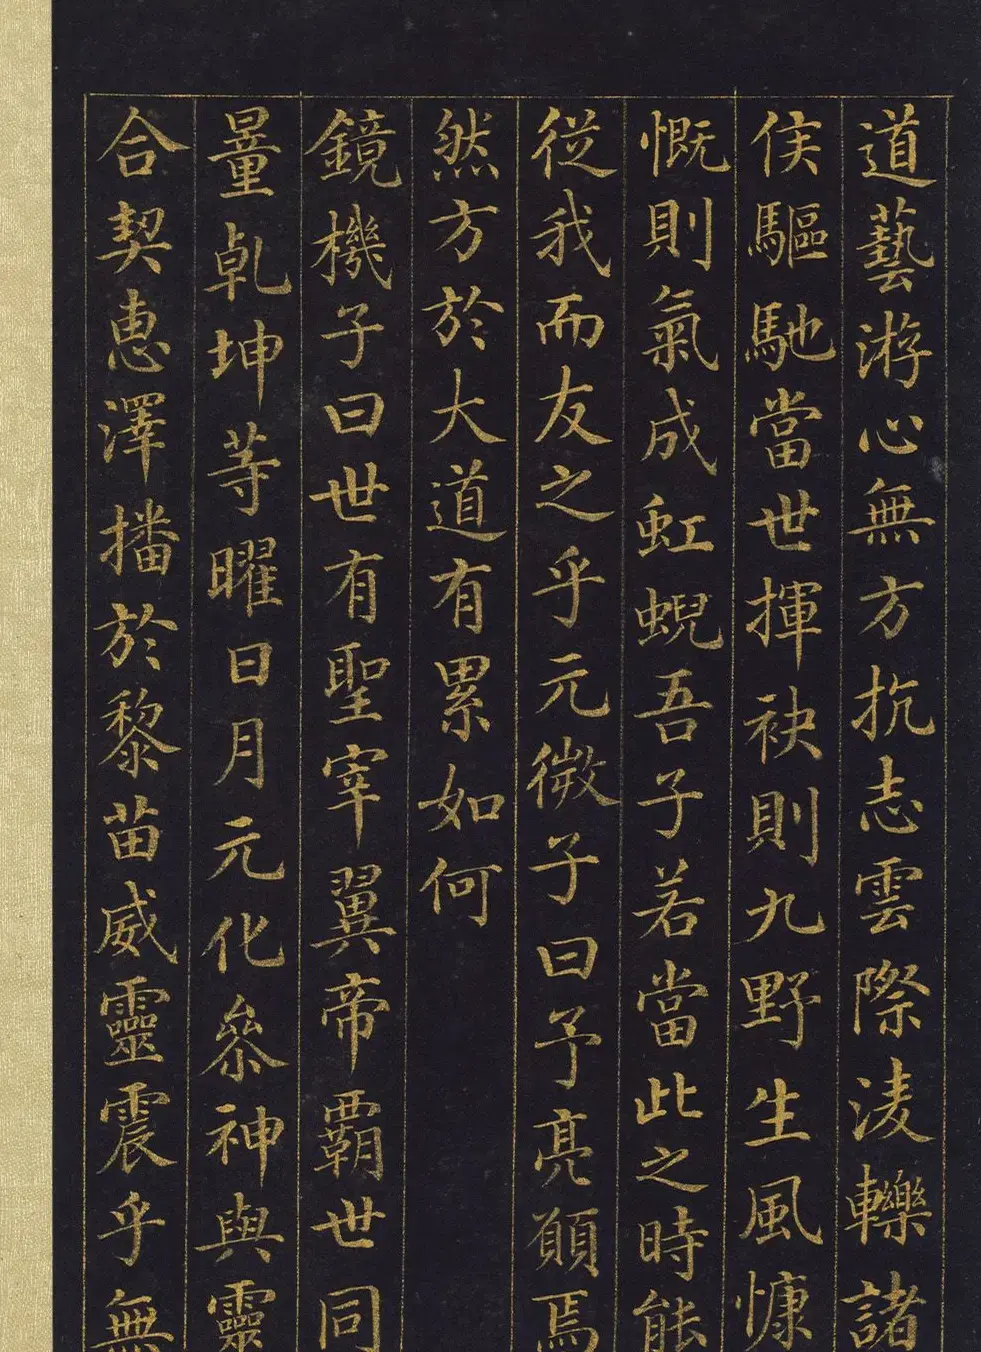 道藝游心無方抗志雲際淩轢諸
侯驅馳當世揮袂則九野生風慷
慨則氣成虹蜺吾子若當此之時能
從我而友之乎元微子曰予亮願焉
然方於大道有累如何
鏡機子曰世有聖宰翼帝霸世同
量乹坤等曜日月元化叅神與靈
合契惠澤播於黎苗威靈震乎無